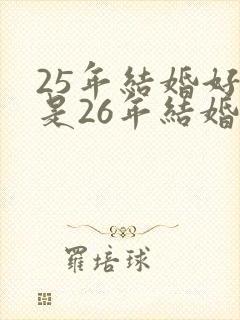 25年結婚好
是26年結婚
羅培球